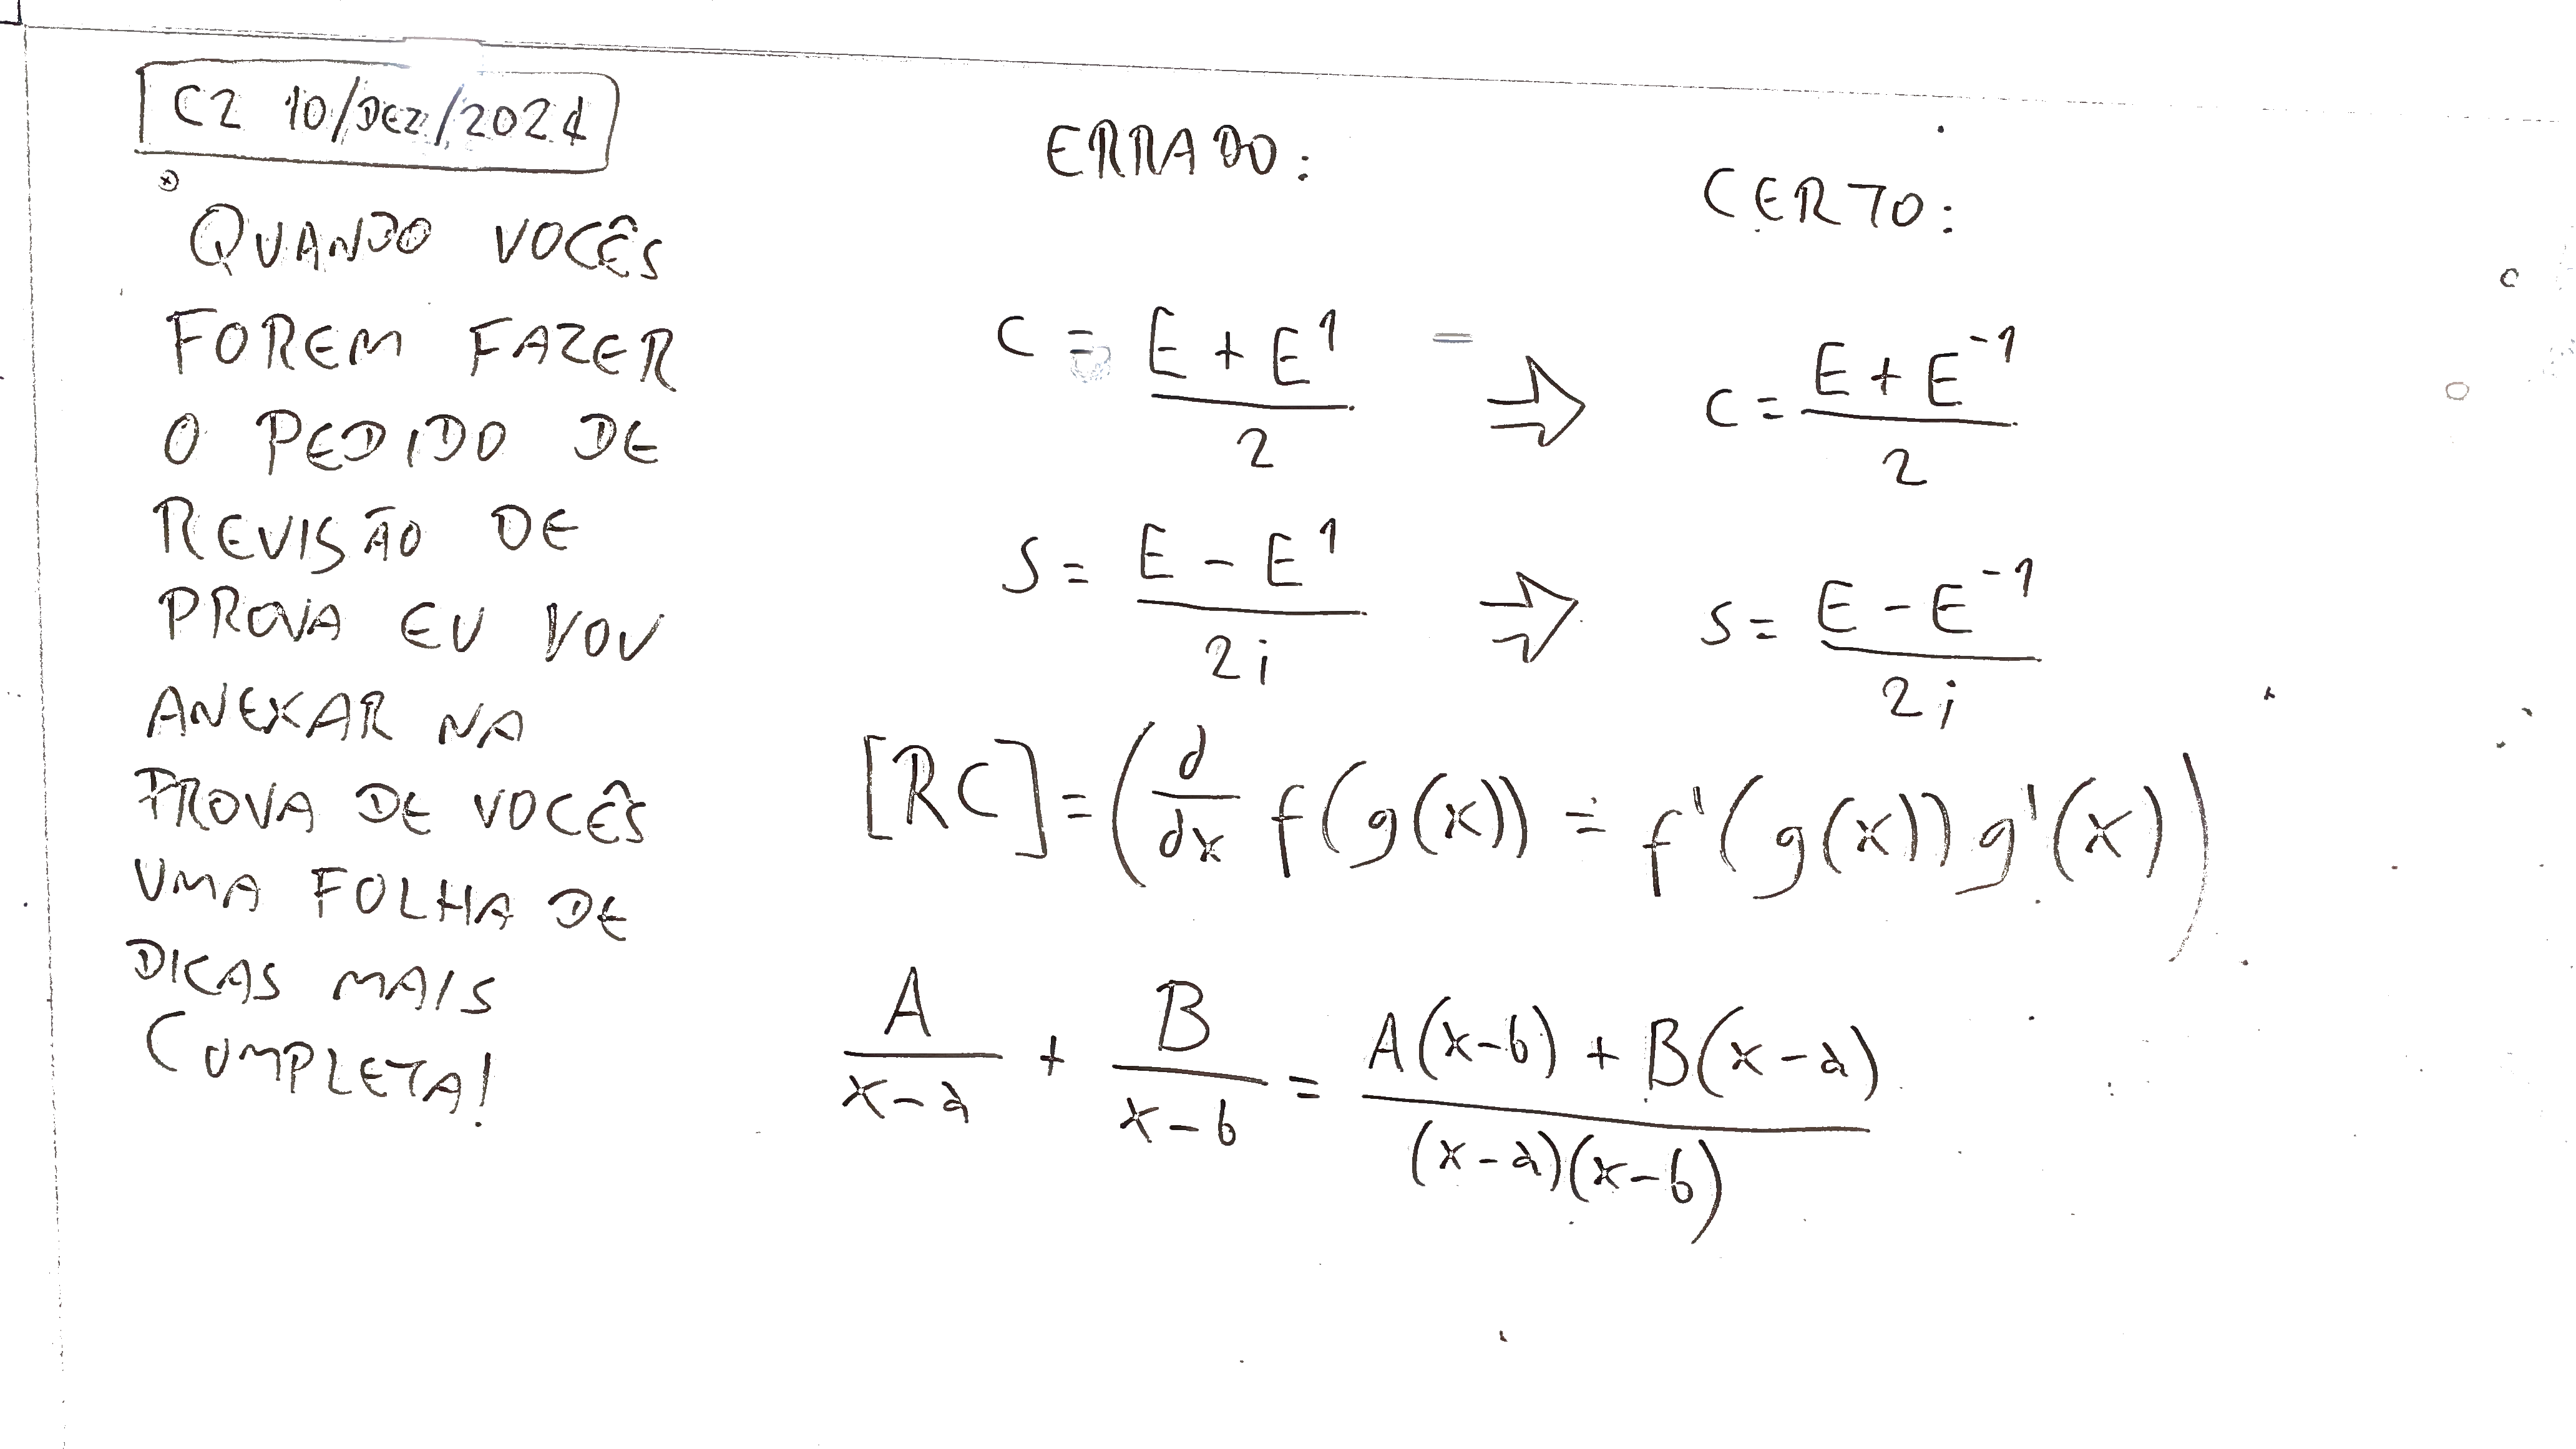 C2 10/DEZ/2024
QUANDO VOCÊS
FOREM FAZER
O PEDIDO DE
REVISÃO DE
PROVA EU VOU
ANEXAR NA
PROVA DE VOCÊS
UMA FOLHA DE
DICAS MAIS
COMPLETA!
ERRADO:
CERTO:
C = (E + E^1)/2 ⇒ C = (E + E^-1)/2
S = (E - E^1)/2i ⇒ S = (E - E^-1)/2i
[RC] = (d/dx f(g(x)) = f'(g(x))g'(x))
A/(x-a) + B/(x-b) = (A(x-b) + B(x-a))/((x-a)(x-b))